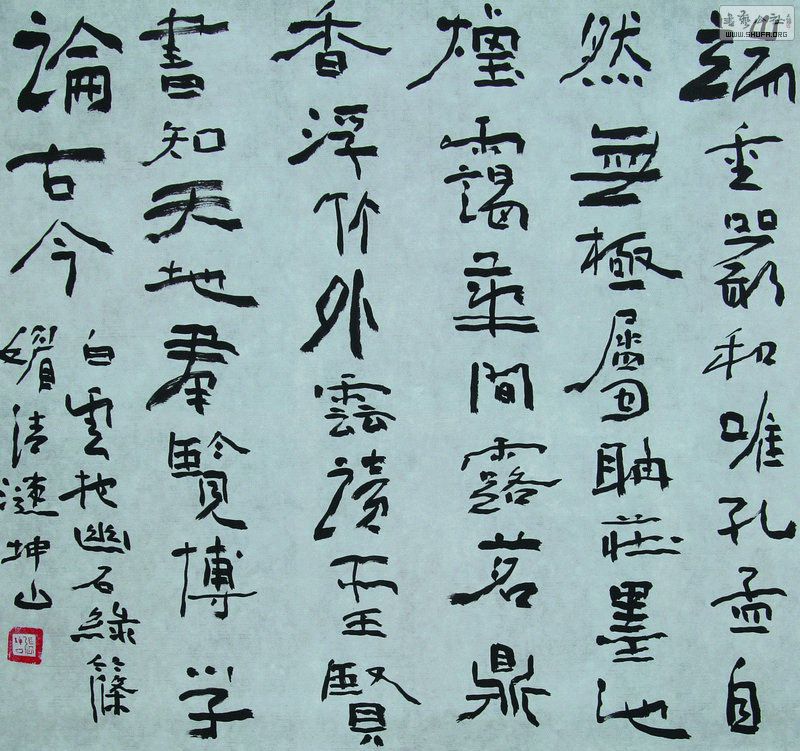 端重嚴和唯孔孟自
然無極屬聃莊墨池
煙靄華間露茗鼎
香浮竹外雲讀聖賢
書知天地羣覽博学
論古今
白雲抱幽石綠篠
媚清漣坤山
WWW.SHUFA.ORG